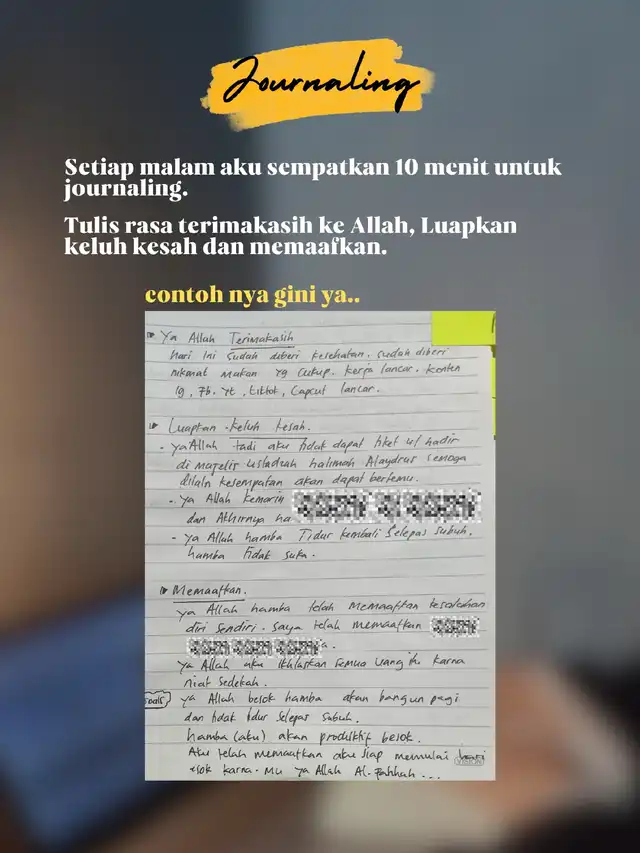 Journaling
Setiap malam aku sempatkan 10 menit untuk
journaling.
Tulis rasa terimakasih ke Allah, Luapkan
keluh kesah dan memaafkan.
contoh nya gini ya..
Ya Allah Terimakasih
Hari ini sudah diberi kesehatan. sudah diberi
nikmat makan yg cukup. kerja lancar. konten
Ig, Fb, yt, tiktok, Capcut lancar.
Luapkan keluh kesah.
- ya Allah tadi aku tidak dapat tiket u/ hadir
di majelis ustadzah halimah Alaydrus semoga
dilain kesempatan akan dapat bertemu.
- ya Allah kemarin
dan Akhirnya ha
- ya Allah hamba Tidur kembali selepas subuh.
hamba tidak suka.
Memaafkan.
ya Allah hamba telah memaafkan kesalahan
diri sendiri. saya telah memaafkan
a.
ya Allah aku ikhlaskan semua uang itu karna
niat sedekah.
goals
ya Allah besok hamba akan bangun pagi
dan tidak tidur selepas subuh.
hamba (aku) akan produktif besok.
Aku telah memaafkan aku siap memulai hari
esok karna-Mu ya Allah Al-Fatihah ...